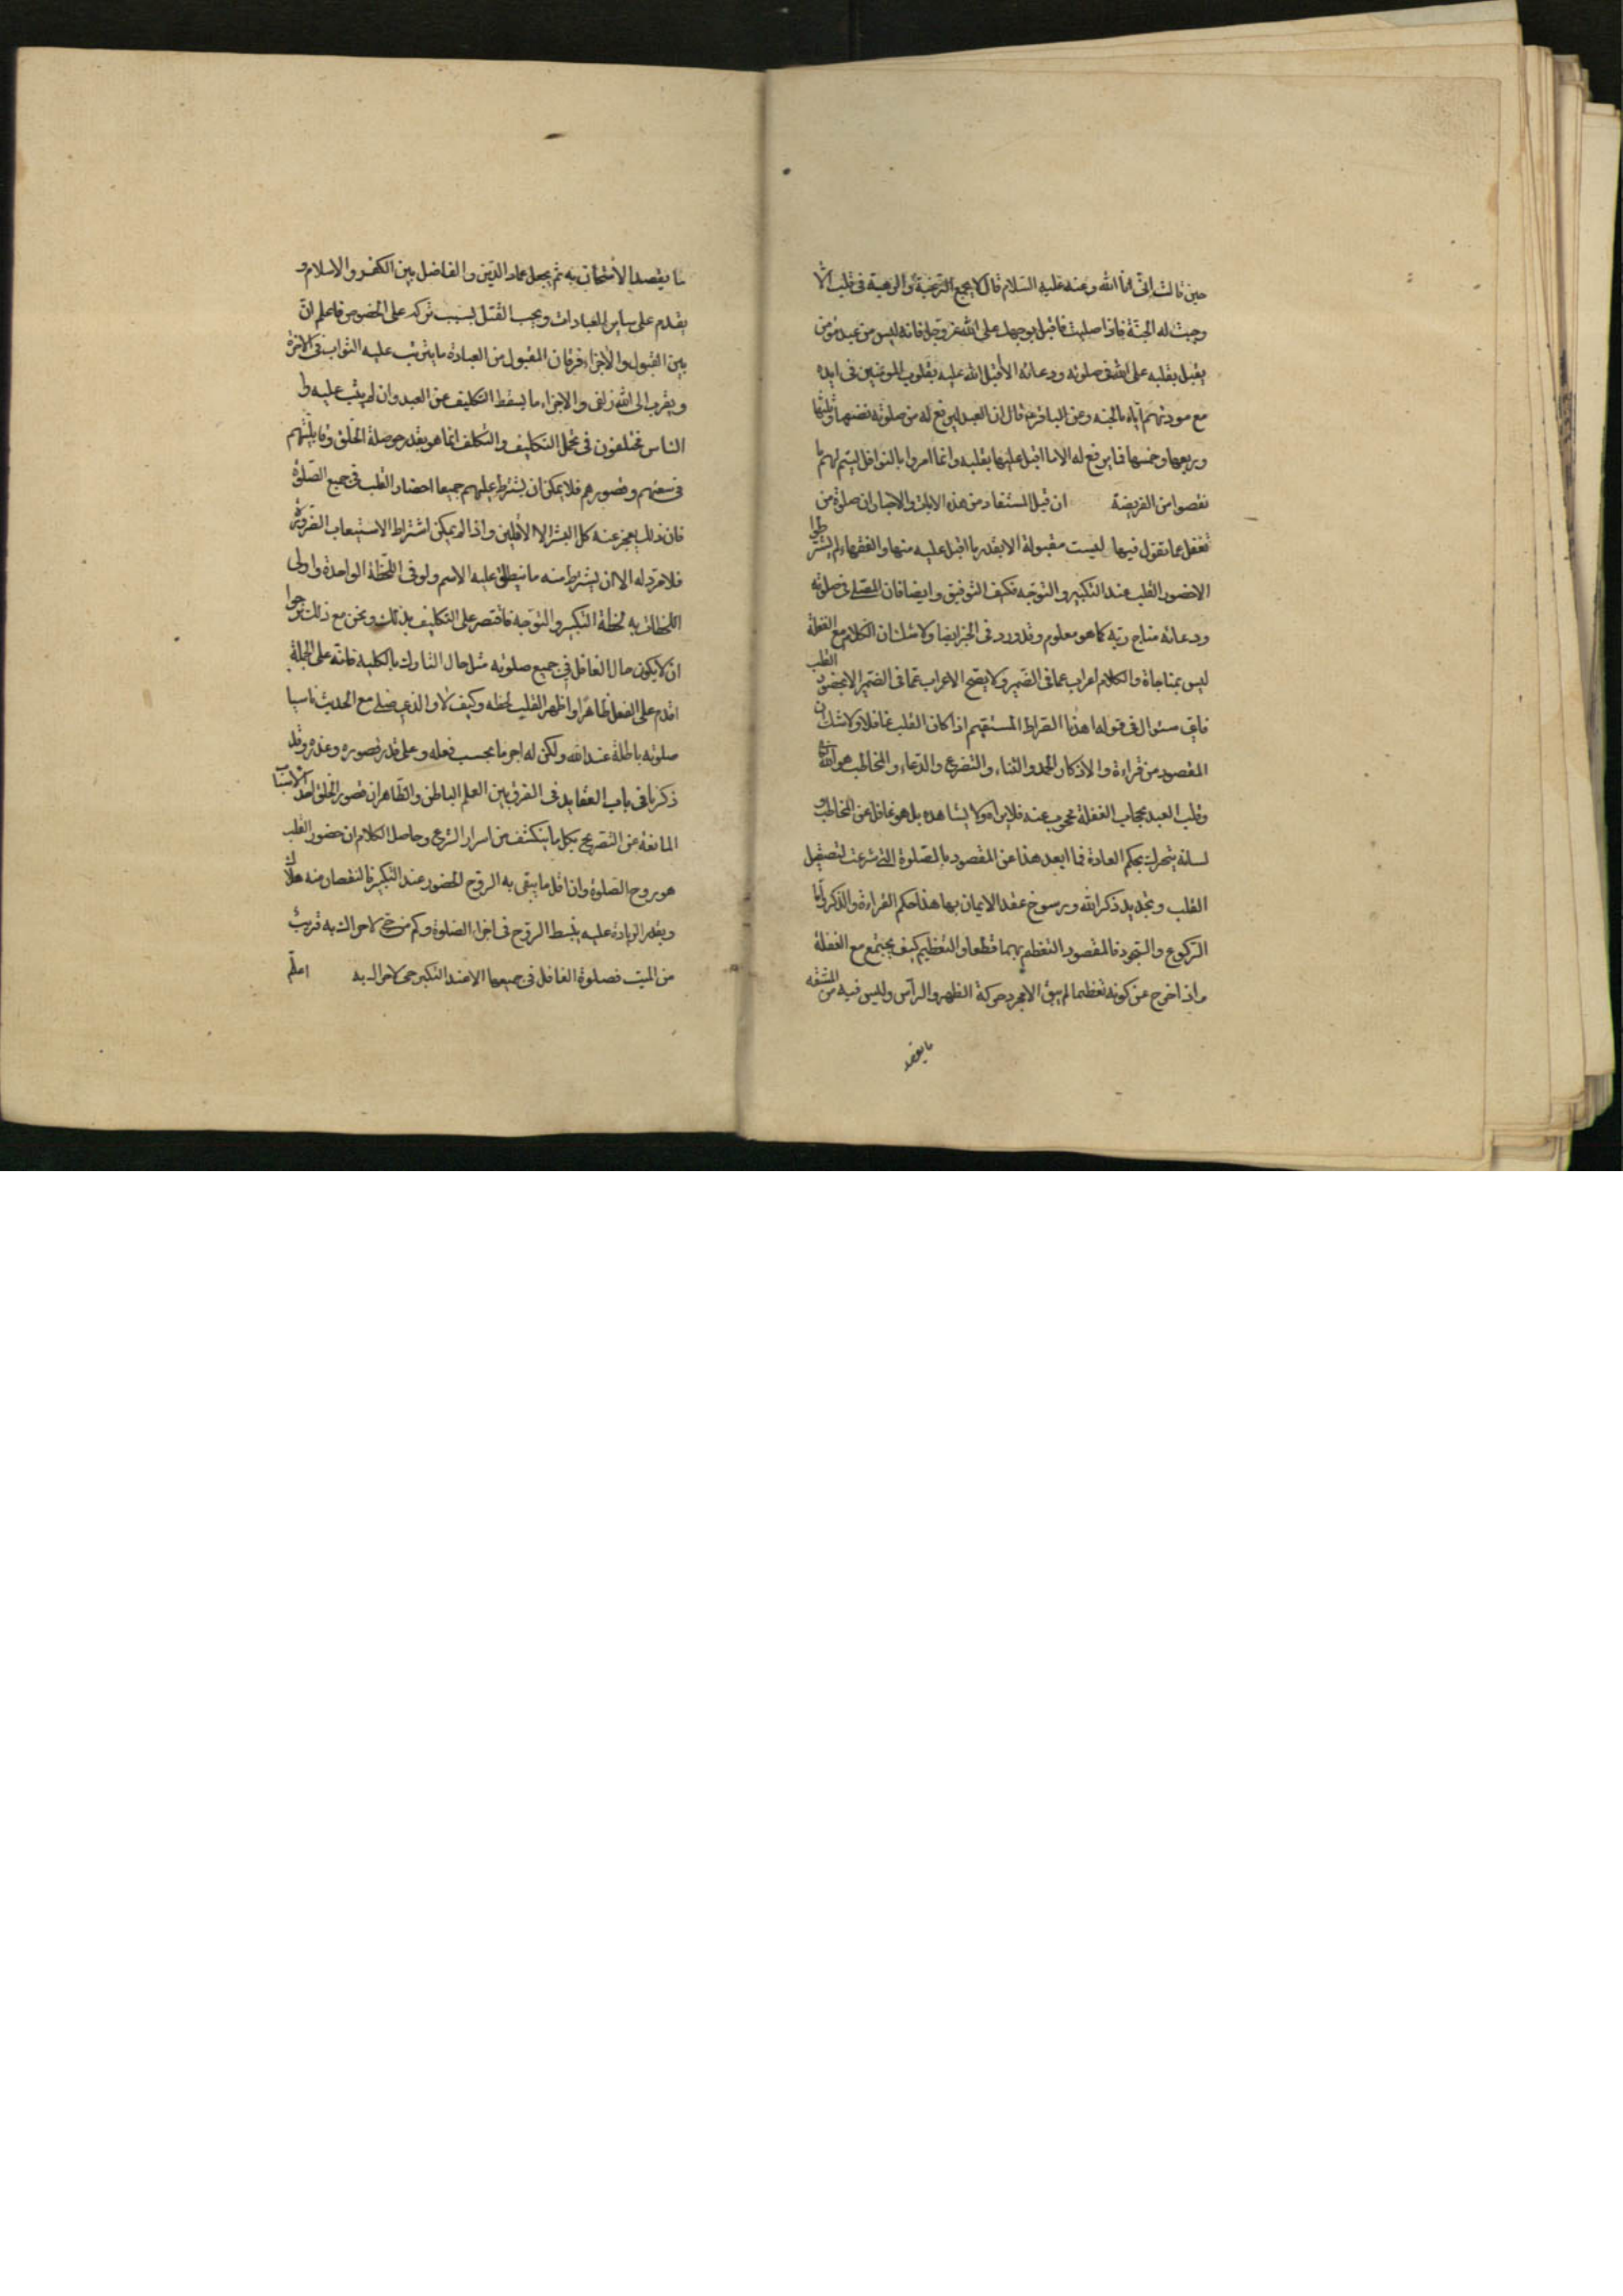 حين قالت انى انا الله وعنه عليه السلام قال لا يجمع الرغبة والرهبة فى قلب الا
وجبت له الجنة فاذا صليت فاقبل بوجهك على الله عز وجل فانه ليس من عبد مؤمن
يقبل بقلبه على الله فى صلوته ودعائه الا اقبل الله عليه بقلوب المؤمنين فى ايده
مع مودتهم اياه بالجنه وعن الباقر قال ان العبد ليرفع له من صلوته نصفها وثلثها
وربعها وخمسها فما يرفع له الا ما اقبل عليها بقلبه وانما امروا بالنوافل ليتم لهم ما
نقصوا من الفريضة ان قيل المستفاد من هذه الايات والاخبار ان صلوة من
تغفل عما تقول فيها ليست مقبولة الا بقدر ما اقبل عليه منها والفقهاء لم يشترطوا
الا حضور القلب عند التكبير والتوجه فكيف التوفيق وايضا فان المصلى فى صلوته
ودعائه مناج ربه كما هو معلوم وقد ورد فى الخبر ايضا ولا شك ان الكلام مع الغفلة
ليس بمناجاة والكلام اعراب عما فى الضمير ولا يصح الاعراب عما فى الضمير الا بحضور القلب
فاى سئوال فى قوله اهدنا الصراط المستقيم اذا كان القلب غافلا ولا شك ان
المقصود من قراءة والاذكار الحمد والثناء والتضرع والدعاء والمخاطب هو الله
وقلب العبد بحجاب الغفلة محجوب عنه فلا يراه ولا يشاهده بل هو غافل عن المخاطب و
لسانه يتحرك بحكم العادة فما ابعد هذا عن المقصود بالصلوة التى شرعت لتصقيل
القلب وتجديد ذكر الله ورسوخ عقد الايمان بها هذا حكم القراءة والذكر اما
الركوع والسجود فالمقصود التعظيم بهما قطعا والتعظيم كيف يجتمع مع الغفلة
واذا خرج عن كونه تعظيما لم يبق الا مجرد حركة الظهر والرأس وليس فيه من المشقه
ما يقصد
ما يقصد الامتحان به ثم يجعل عماد الدين والفاصل بين الكفر والاسلام و
يقدم على ساير العبادات ويجب القتل بسبب تركه على الخصوص فاعلم ان
بين القبول والاجزاء فرقا ن المقبول من العبادة ما يترتب عليه الثواب فى الاخرة
ويقرب الى الله زلفى والاجزاء ما يسقط التكليف عن العبد وان لم يثب عليه و
الناس مختلفون فى تحمل التكليف والتكلف انما هو بقدر حوصلة الخلق وقابليتهم
فى سعتهم وقصورهم فلا يمكن ان يشترط عليهم جميعا احضار القلب فى جميع الصلوة
فان ذلك يعجز عنه كل البشر الا الاقلين واذا لم يمكن اشتراط الاستيعاب للضرورة
فلا مرد له الا ان يشترط منه ما ينطلق عليه الاسم ولو فى اللحظة الواحدة واولى
اللحظات به لحظة التكبير والتوجه فاقتصر على التكليف بذلك ونحن مع ذلك نرجوا
ان لا يكون حال الغافل فى جميع صلوته مثل حال التارك بالكلية فانه على الجملة
اقدم على الفعل ظاهرا واظهر القلب لحظه وكيف لا والذى صلى مع الحدث ناسيا
صلوته باطلة عند الله ولكن له اجر ما بحسب فعله وعلى قدر قصوره وعذره وقد
ذكرنا فى باب العقايد فى الفرق بين العلم الباطن والظاهر ان قصور الخلق احد الاسباب
المانعة من التصريح بكل ما ينكشف من اسرار الشرع وحاصل الكلام ان حضور القلب
هو روح الصلوة وان اقل ما يبقى به الروح الحضور عند التكبير فالنقصان منه هلاك
وبقدر الزيادة عليه ينبسط الروح فى اجزاء الصلوة وكم من حى لا حراك به قريب
من الميت فصلوة الغافل فى جميعها الا عند التكبير حى لا حراك به اعلم